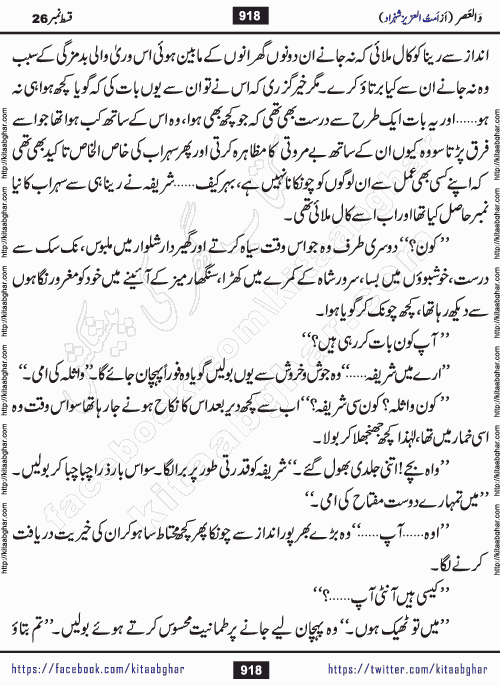 والعصر (از اَمتُہ العزیز شہزاد) 918 قسط نمبر 26
انداز سے رینا کو کال ملائی کہ نہ جانے ان دونوں گھرانوں کے مابین ہوئی اس وریٰ والی بدمزگی کے سبب
وہ نہ جانے ان سے کیا برتاؤ کرے۔ مگر خیر گزری کہ اس نے تو ان سے یوں بات کی کہ گویا کچھ ہوا ہی نہ
ہو......اور یہ بات ایک طرح سے درست بھی تھی کہ جو کچھ بھی ہوا، وہ اس کے ساتھ کب ہوا تھا جو اسے
فرق پڑتا سو وہ کیوں ان کے ساتھ بے مروتی کا مظاہرہ کرتی اور پھر سہراب کی خاص الخاص تاکید بھی تھی
کہ اپنے کسی بھی عمل سے ان لوگوں کو چونکانا نہیں ہے، بہرکیف......شریفہ نے رینا ہی سے سہراب کا نیا
نمبر حاصل کیا تھا اور اب اسے کال ملائی تھی۔
’’کون؟‘‘ دوسری طرف وہ جو اس وقت سیاہ کرتے اور گھیر دار شلوار میں ملبوس، نک سک سے
درست، خوشبوؤں میں بسا، سرور شاہ کے کمرے میں کھڑا، سنگھار میز کے آئینے میں خود کو مغرور نگاہوں
سے دیکھ رہا تھا، کچھ چونک کر گویا ہوا۔
’’آپ کون بات کر رہی ہیں؟‘‘
’’ارے میں شریفہ......‘‘ وہ جوش و خروش سے یوں بولیں گویا وہ فوراً پہچان جائے گا۔ ’’واثلہ کی امی۔‘‘
’’کون واثلہ؟ کون سی شریفہ؟‘‘ اب سے کچھ دیر بعد اس کا نکاح ہونے جا رہا تھا سو اس وقت وہ
اسی خمار میں تھا، لہٰذا کچھ جھنجھلا کر بولا۔
’’واہ بچے! اتنی جلدی بھول گئے۔‘‘ شریفہ کو قدرتی طور پر برا لگا۔ سو اس بار ذرا چبا چبا کر بولیں۔
’’میں تمہارے دوست مفتاح کی امی۔‘‘
’’اوہ......آپ......‘‘ وہ بڑے بھرپور انداز سے چونکا پھر کچھ محتاط سا ہو کر ان کی خیریت دریافت
کرنے لگا۔
’’کیسی ہیں آنٹی آپ......؟‘‘
’’میں تو ٹھیک ہوں۔‘‘ وہ پہچان لیے جانے پر طمانیت محسوس کرتے ہوئے بولیں۔ ’’تم بتاؤ
https://facebook.com/kitaabghar 918 https://twitter.com/kitaabghar
http://kitaabghar.com http://kitaabghar.com http://kitaabghar.com http://kitaabghar.com http://kitaabghar.com
http://kitaabghar.com http://kitaabghar.com http://kitaabghar.com http://kitaabghar.com http://kitaabghar.com